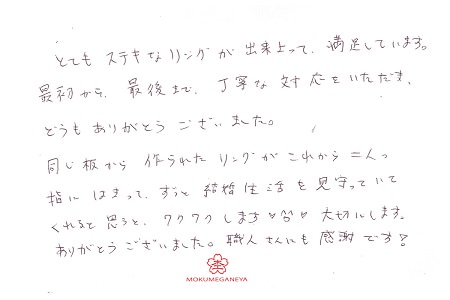 とてもステキなリングが出来上って、満足しています。
最初から、最後まで、丁寧な対応をいただき、
どうもありがとうございました。
同じ板から作られたリングがこれから二人の
指にはまって、ずっと結婚生活を見守っていて
くれると思うと、ワクワクします♡♡大切にします。
ありがとうございました。職人さんにも感謝です!
MOKUMEGANEYA